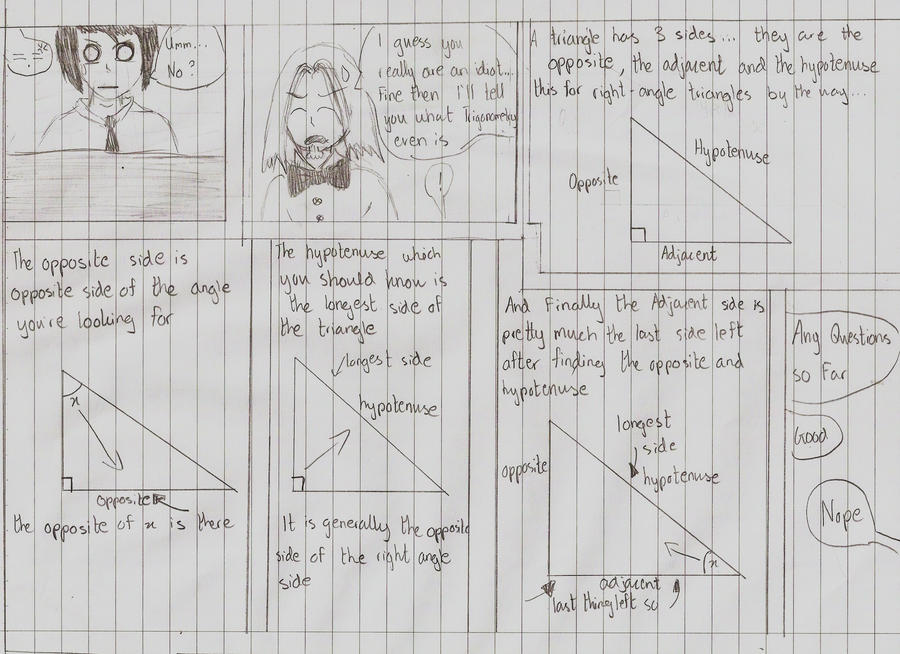 Umm...
No?
I guess you
really are an idiot...
Fine then I'll tell
you what Trigonometry
even is
!
A triangle has 3 sides... they are the
opposite, the adjacent and the hypotenuse
this for right-angle triangles by the way...
Hypotenuse
Opposite
Adjacent
The opposite side is
opposite side of the angle
you're looking for
x
opposite
the opposite of x is there
The hypotenuse which
you should know is
the longest side of
the triangle
longest side
hypotenuse
It is generally the opposite
side of the right angle
side
And Finally the Adjacent side is
pretty much the last side left
after finding the opposite and
hypotenuse
longest
side
opposite
hypotenuse
x
adjacent
last thing left so
Any Questions
so Far
Good
Nope